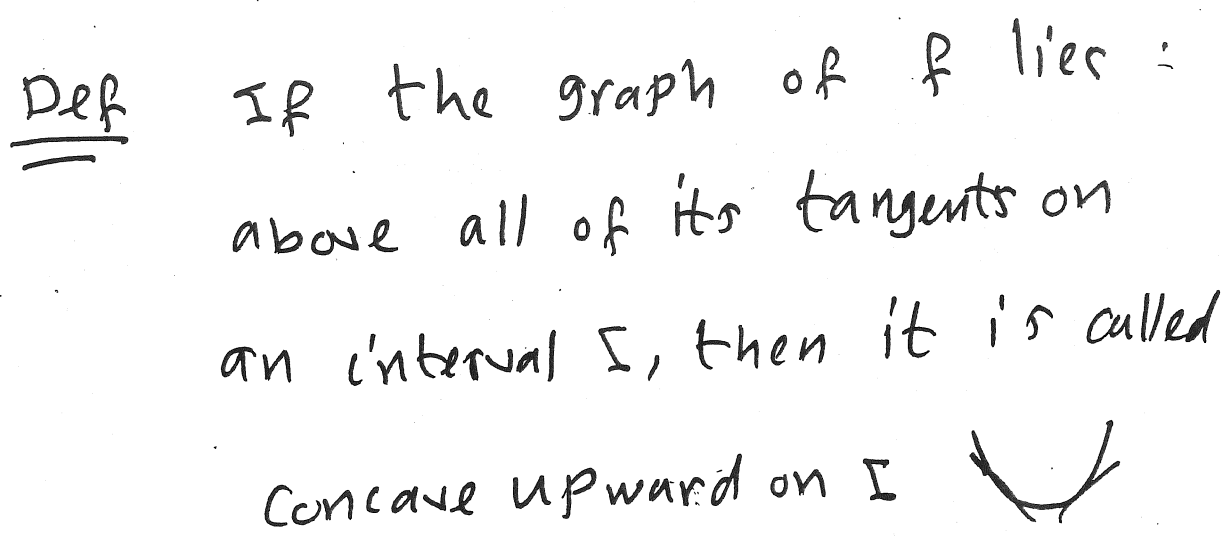 Def If the graph of f lies :
above all of its tangents on
an interval I, then it is called
concave upward on I